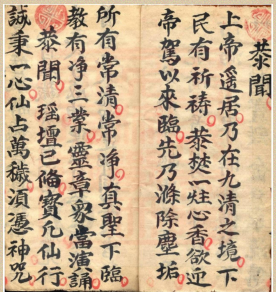 恭聞
上帝遥居乃在九清之境下
民有祈禱恭焚一炷心香欲迎
帝駕以來臨先乃滌除塵垢
所有常清常净真聖下臨
教有净三業靈章衆當演誦
恭聞瑶壇已俻寳凢仙行
誠秉一心仙占萬穢湏憑神咒